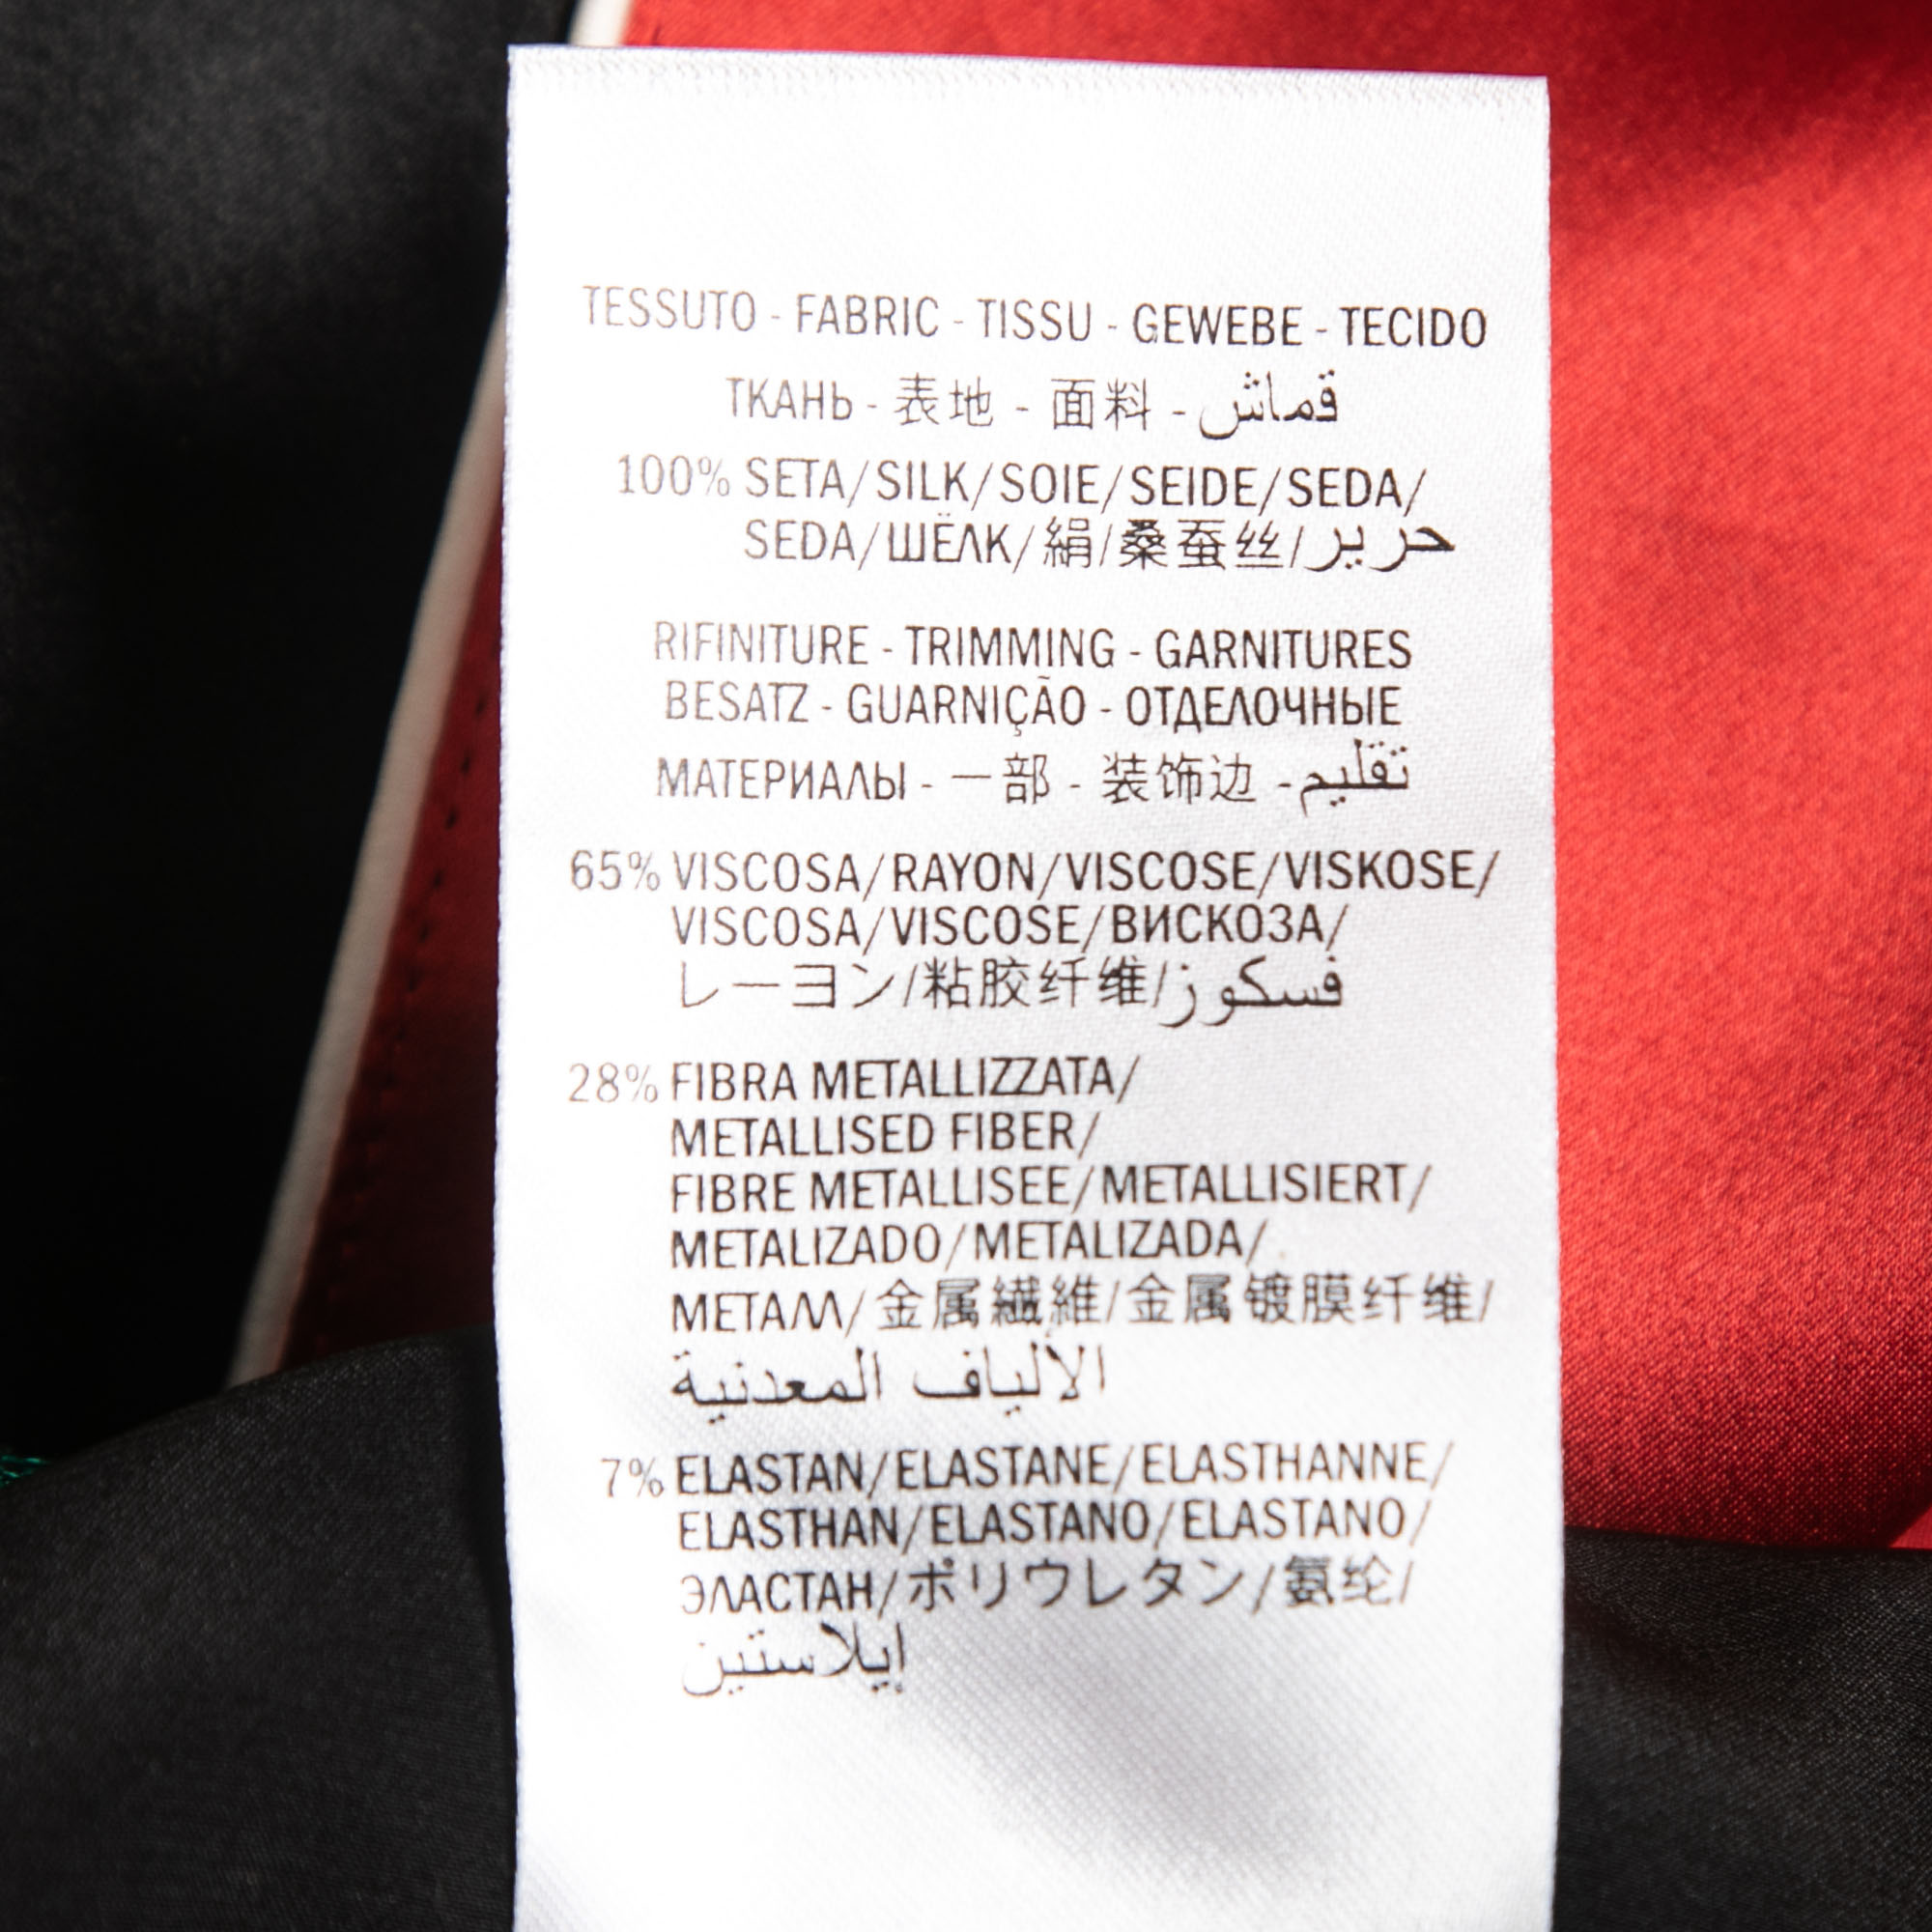 TESSUTO - FABRIC - TISSU - GEWEBE - TECIDO
ТКАНЬ - 表地 - 面料 - قماش
100% SETA/SILK/SOIE/SEIDE/SEDA/
SEDA/ШЁЛК/絹/桑蚕丝/حرير
RIFINITURE - TRIMMING - GARNITURES
BESATZ - GUARNIÇÃO - ОТДЕЛОЧНЫЕ
МАТЕРИАЛЫ - 一部 - 装饰边 - تقليم
65% VISCOSA/RAYON/VISCOSE/VISKOSE/
VISCOSA/VISCOSE/ВИСКОЗА/
レーヨン/粘胶纤维/فسكوز
28% FIBRA METALLIZZATA/
METALLISED FIBER/
FIBRE METALLISEE/METALLISIERT/
METALIZADO/METALIZADA/
МЕТАЛЛ/金属繊維/金属镀膜纤维/
الألياف المعدنية
7% ELASTAN/ELASTANE/ELASTHANNE/
ELASTHAN/ELASTANO/ELASTANO/
ЭЛАСТАН/ポリウレタン/氨纶/
إيلاستين